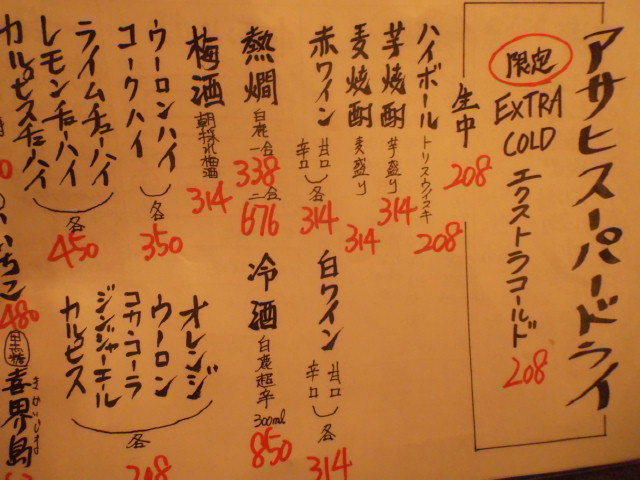 アサヒスーパードライ
限定
EXTRA
COLD
エクストラコールド
208
生中
208
ハイボール トリスウイスキー
208
芋焼酎 芋盛り
314
麦焼酎 麦盛り
314
赤ワイン 甘口 辛口 各
314
白ワイン 甘口 辛口 各
314
熱燗 白鹿 一合
338
二合
676
冷酒 白鹿超辛 300ml
850
梅酒 朝採れ梅酒
314
ウーロンハイ
コークハイ
各
350
ライムチューハイ
レモンチューハイ
カルピスチューハイ
各
450
オレンジ
ウーロン
コカ・コーラ
ジンジャーエール
カルピス
各
208
いいちこ
480
黒糖
喜界島
きかいじま